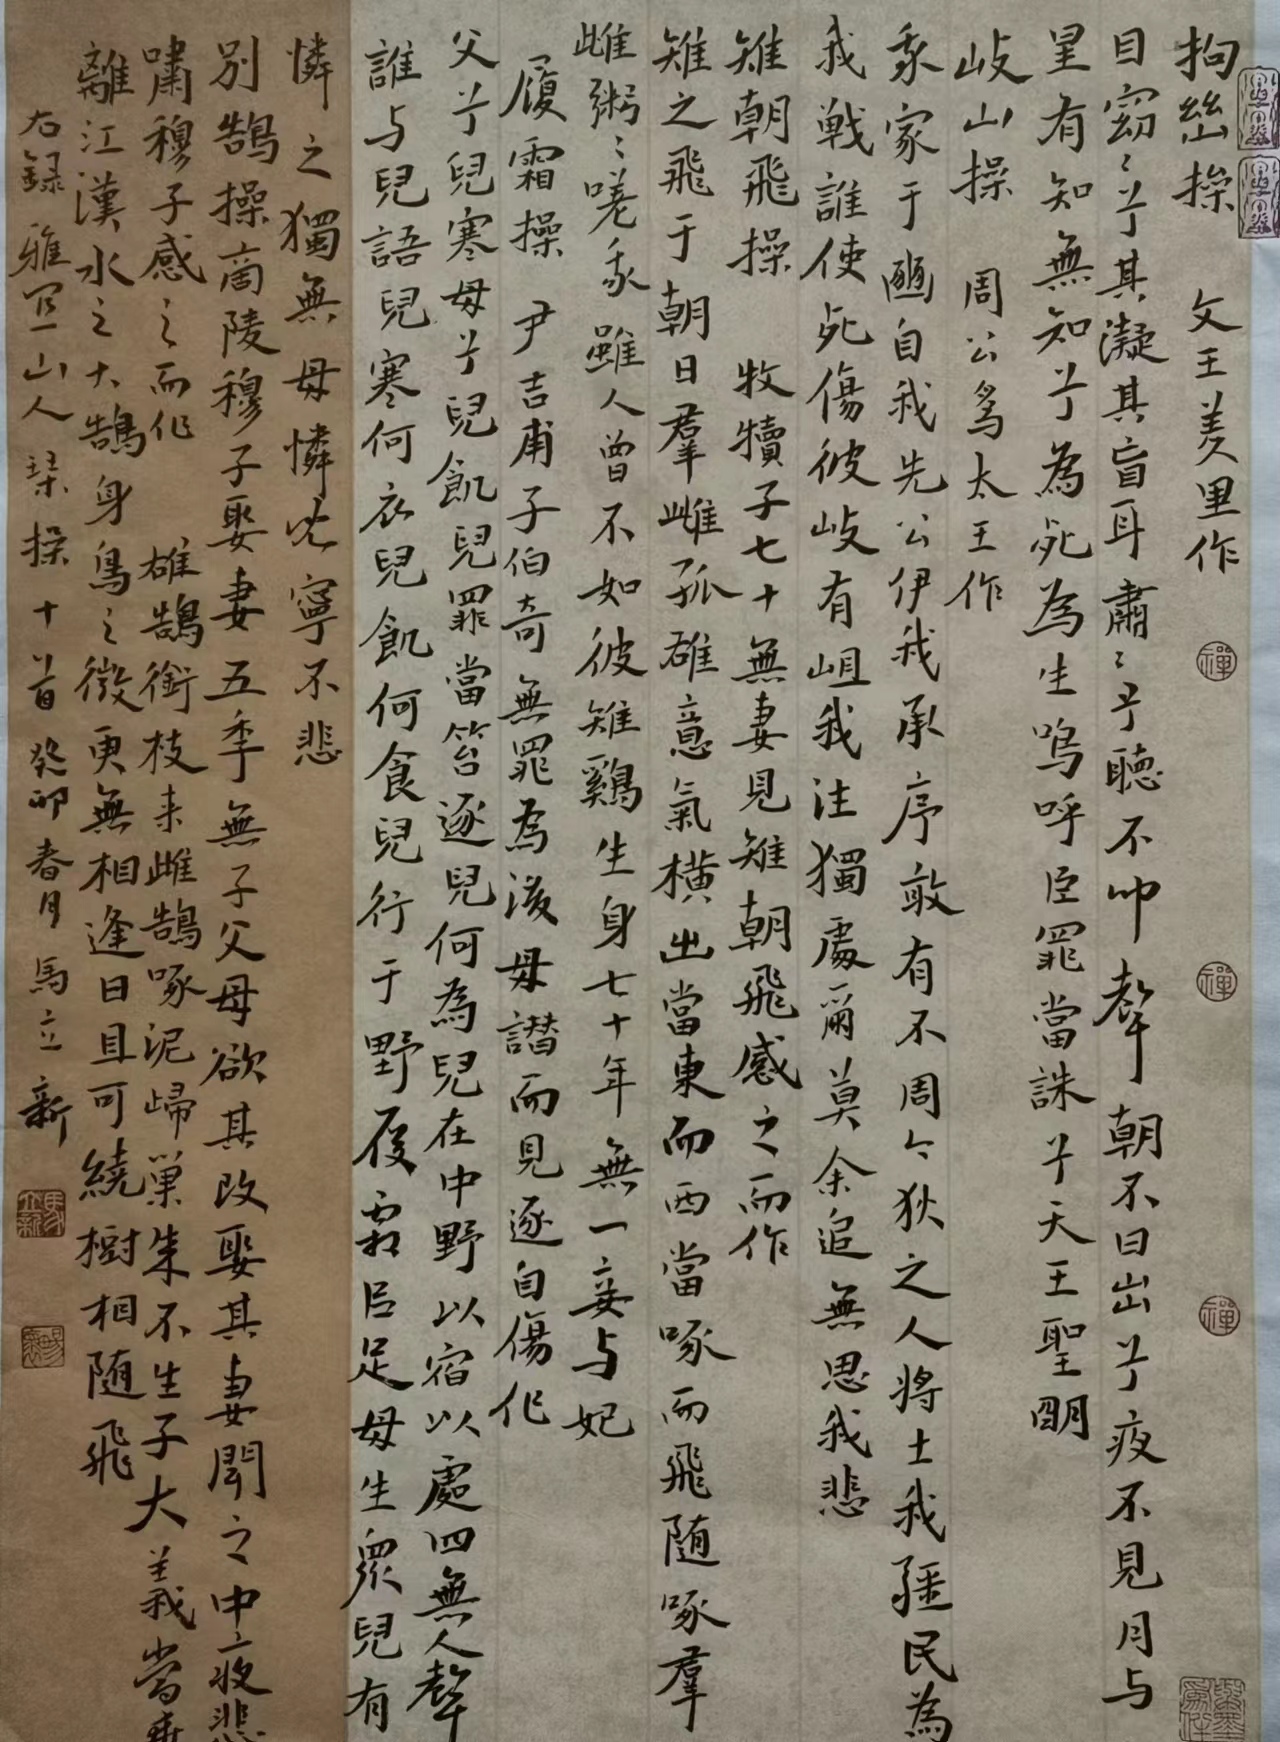 拘幽操 文王羑里作
目窈〻兮其凝其盲耳肅〻兮聽不聲朝不日出兮夜不見月与
星有知無知兮為死為生嗚呼臣罪當誅兮天王聖明
岐山操 周公為太王作
我家于豳自我先公伊我承序敢有不周今狄之人將土我疆民為
我戰誰使死傷彼岐有岨我往獨處爾莫余追無思我悲
雉朝飛操 牧犢子七十無妻見雉朝飛感之而作
雉之飛于朝日羣雌孤雄意氣橫出當東而西當啄而飛随啄羣
雌粥〻嗟我雖人曾不如彼雉鷄生身七十年無一妾与妃
履霜操 尹吉甫子伯奇無罪為後母譖而見逐自傷作
父兮兒寒母兮兒飢兒罪當笞逐兒何為兒在中野以宿以處四無人聲
誰与兒語兒寒何衣兒飢何食兒行于野履霜以足母生衆兒有
憐之獨無母憐兒寧不悲
別鵠操商陵穆子娶妻五年無子父母欲其改娶其妻聞之中夜悲
嘯穆子感之而作 雄鵠銜枝来雌鵠啄泥歸巢成不生子大義當乖
離江漢水之大鵠身鳥之微更無相逢日且可繞樹相随飛
右録雅宜山人琴操十首癸卯春月馬立新
禪
禪
禪
馬立新